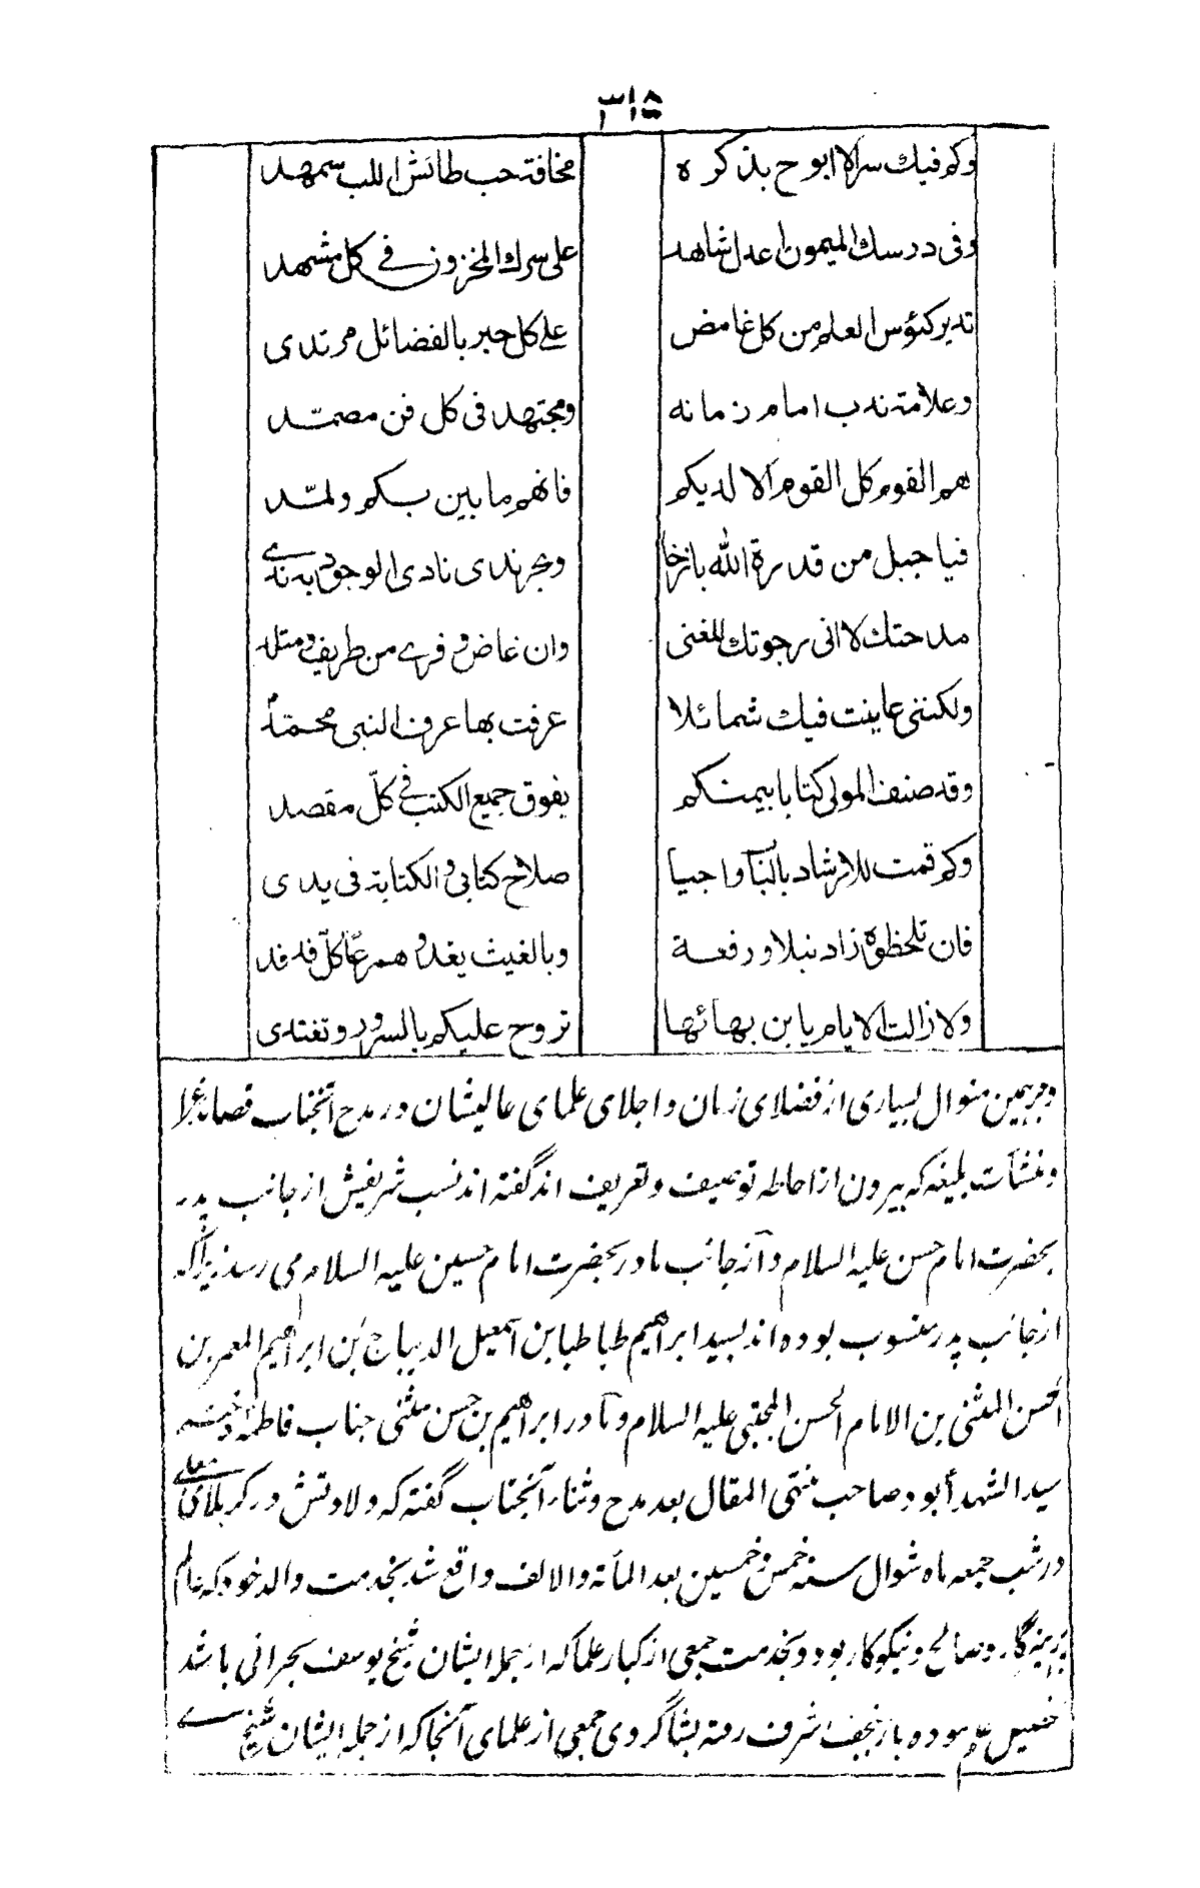 ٣١٥
وكم فيك سرلا ابوح بذكره مخافة حب طائش اللب سمهد
وفى درسك الميمون اعدل شاهد على سرك المخزون في كل مشهد
تدير كئوس العلم من كل غامض على كل حبر بالفضائل مرتدى
وعلامة ندب امام زمانه ومجتهد فى كل فن مصمّد
هم القوم كل القوم الا لديكم فانهم ما بين بكم ولمّد
فيا جبل من قدرة الله باذخا وبحر ندى نادى الوجود به ندے
مدحتك لا انى رجوتك للغنى وان غاض وفرے من طريف ومتلد
ولكننى عاينت فيك شمائلا عرفت بها عرف النبى محمّد
وقد صنف المولى كتابا بيمنكم يفوق جميع الكتب فے كلّ مقصد
وكم قمت للارشاد بالبآ واجبا صلاح كتابى والكتابة فى يدى
فان تلحظوه زاد نبلا ورفعة وبالغيث يغدو همرعا كلّ فدفد
ولا زالت الايام يا بن بهائها تروح عليكم بالسرور وتغتدى
وبرهمين منوال بسيارى از فضلاى زمان واجلاى علماى عاليشان در مدح آنجناب قصائد غرا
ومنشآت بليغه كه بيرون از احاطه توصيف وتعريف اند گفته اند نسب شريفش از جانب پدر
بحضرت امام حسن عليه السلام وآز جانب مادر بحضرت امام حسين عليه السلام مى رسد زيرا كه
از جانب پدر منسوب بوده اند بسيد ابراهيم طباطبا بن اسمعيل الديباج بن ابراهيم المعمر بن
الحسن المثنى بن الامام الحسن المجتبى عليه السلام ومادر ابراهيم بن حسن مثنى جناب فاطمه دختر
سيد الشهدأ بود صاحب منتهى المقال بعد مدح وثناء آنجناب گفته كه ولادتش در كربلاى معلے
در شب جمعه ماه شوال سنه خمس وخمسين بعد المأة والالف واقع شد بخدمت والد خود كه عالم
پرهيزگار وصالح ونيكوكار بود وبخدمت جمعى از كبار علما كه از جمله ايشان شيخ يوسف بحرانى باشد
نموده باز بنجف اشرف رفته بشاگردى جمعى از علماى آنجا كه از جمله ايشان شيخ